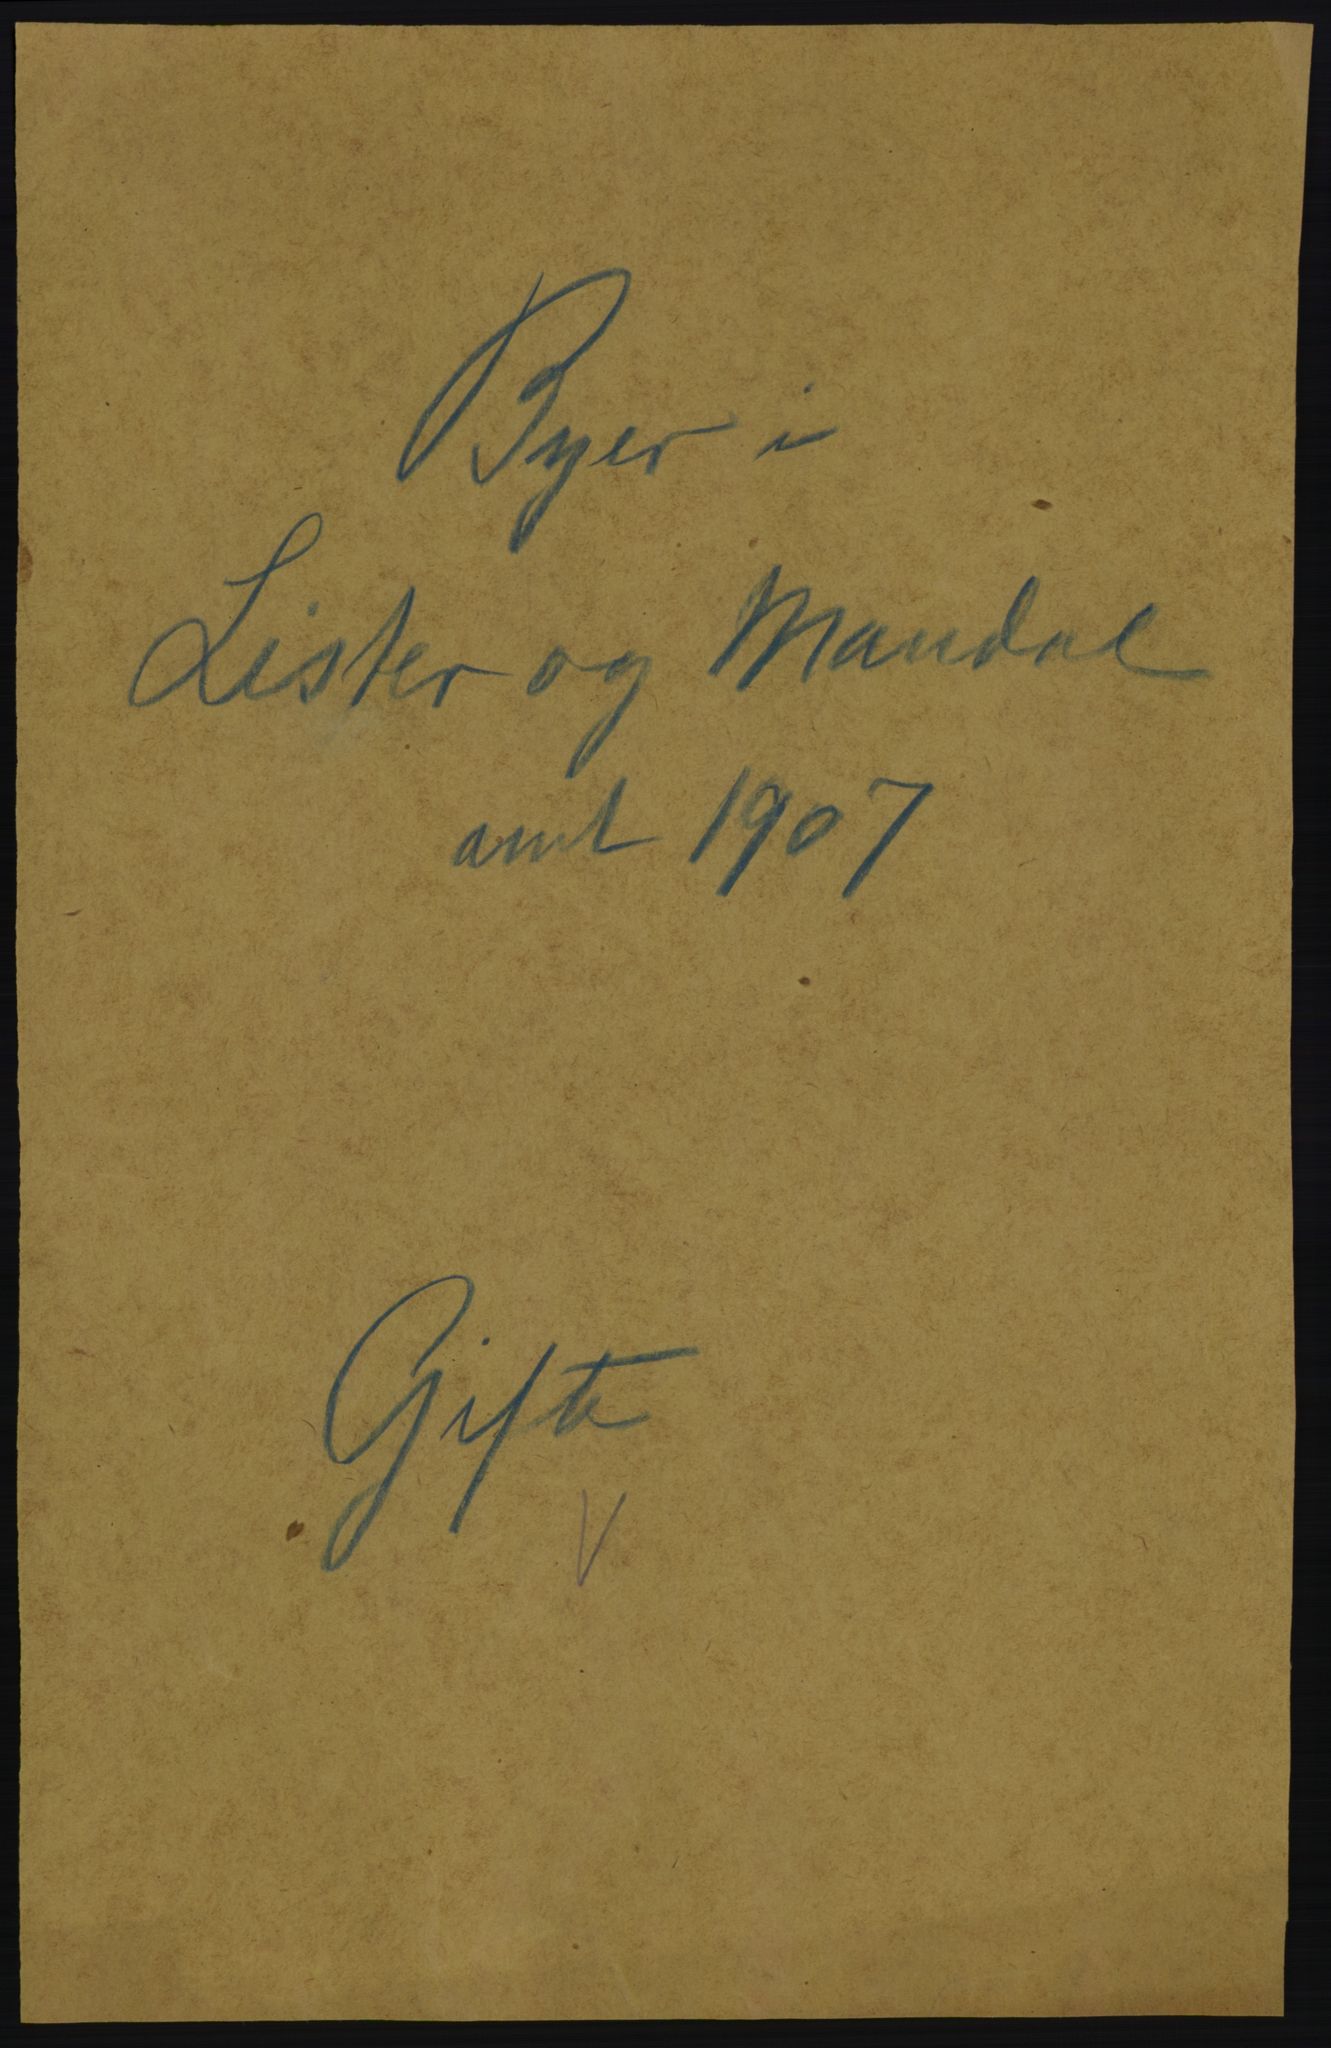 Byer i
Lister og Mandal
amt 1907
Gifte
V